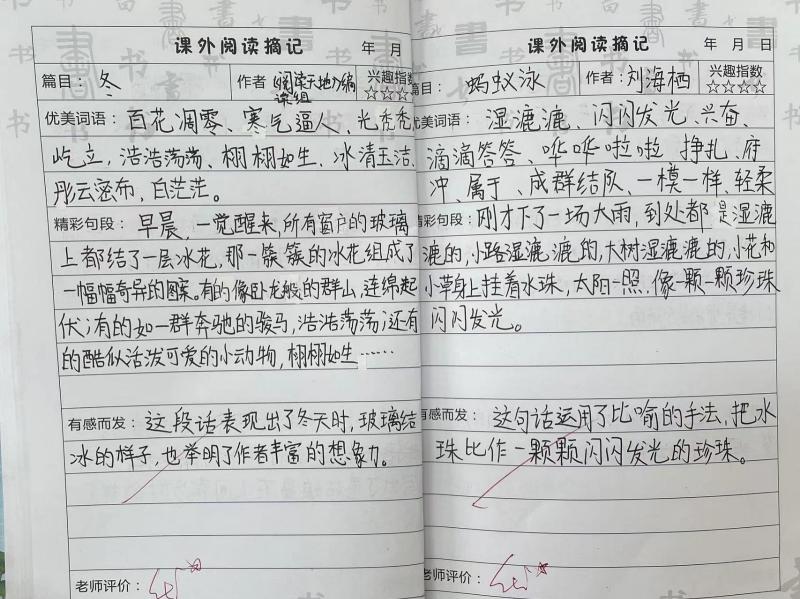 课外阅读摘记
年 月
篇目：冬
作者 《阅读天地》编
读组
兴趣指数
☆☆☆☆
优美词语：百花凋零、寒气逼人、光秃秃、
屹立、浩浩荡荡、栩栩如生、冰清玉洁、
彤云密布，白茫茫。
精彩句段：早晨，一觉醒来，所有窗户的玻璃
上都结了一层冰花，那一簇簇的冰花组成了
一幅幅奇异的图案。有的像卧龙般的群山，连绵起
伏；有的如一群奔驰的骏马，浩浩荡荡；还有
的酷似活泼可爱的小动物，栩栩如生……
有感而发：这段话表现出了冬天时，玻璃结
冰的样子，也举明了作者丰富的想象力。
老师评价：
课外阅读摘记
年 月 日
篇目： 蚂蚁泳
作者：刘海栖
兴趣指数
☆☆☆☆
优美词语：湿漉漉、闪闪发光、兴奋、
滴滴答答、哗哗啦啦、挣扎、俯
冲、属于、成群结队、一模一样、轻柔
精彩句段：刚才下了一场大雨，到处都是湿漉
漉的，小路湿漉漉的，大树湿漉漉的，小花和
小草身上挂着水珠，太阳一照，像一颗一颗珍珠
闪闪发光。
有感而发： 这句话运用了比喻的手法，把水
珠比作一颗颗闪闪发光的珍珠。
老师评价：